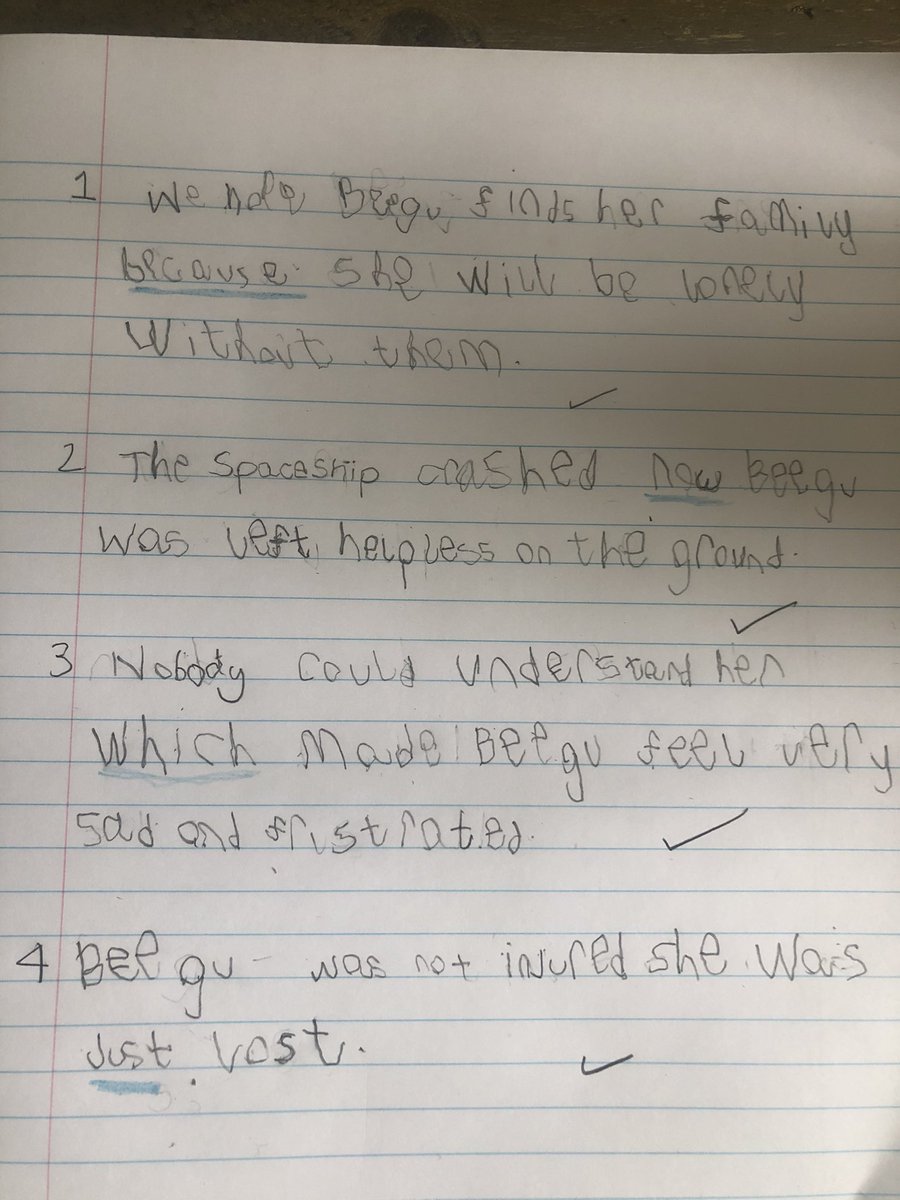 1 We hope Beegu finds her family
because she will be lonely
without them.
2 The spaceship crashed now Beegu
was left helpless on the ground.
3 Nobody could understand her
which made Beegu feel very
sad and fristrated.
4 Beegu was not inured she was
Just lost.